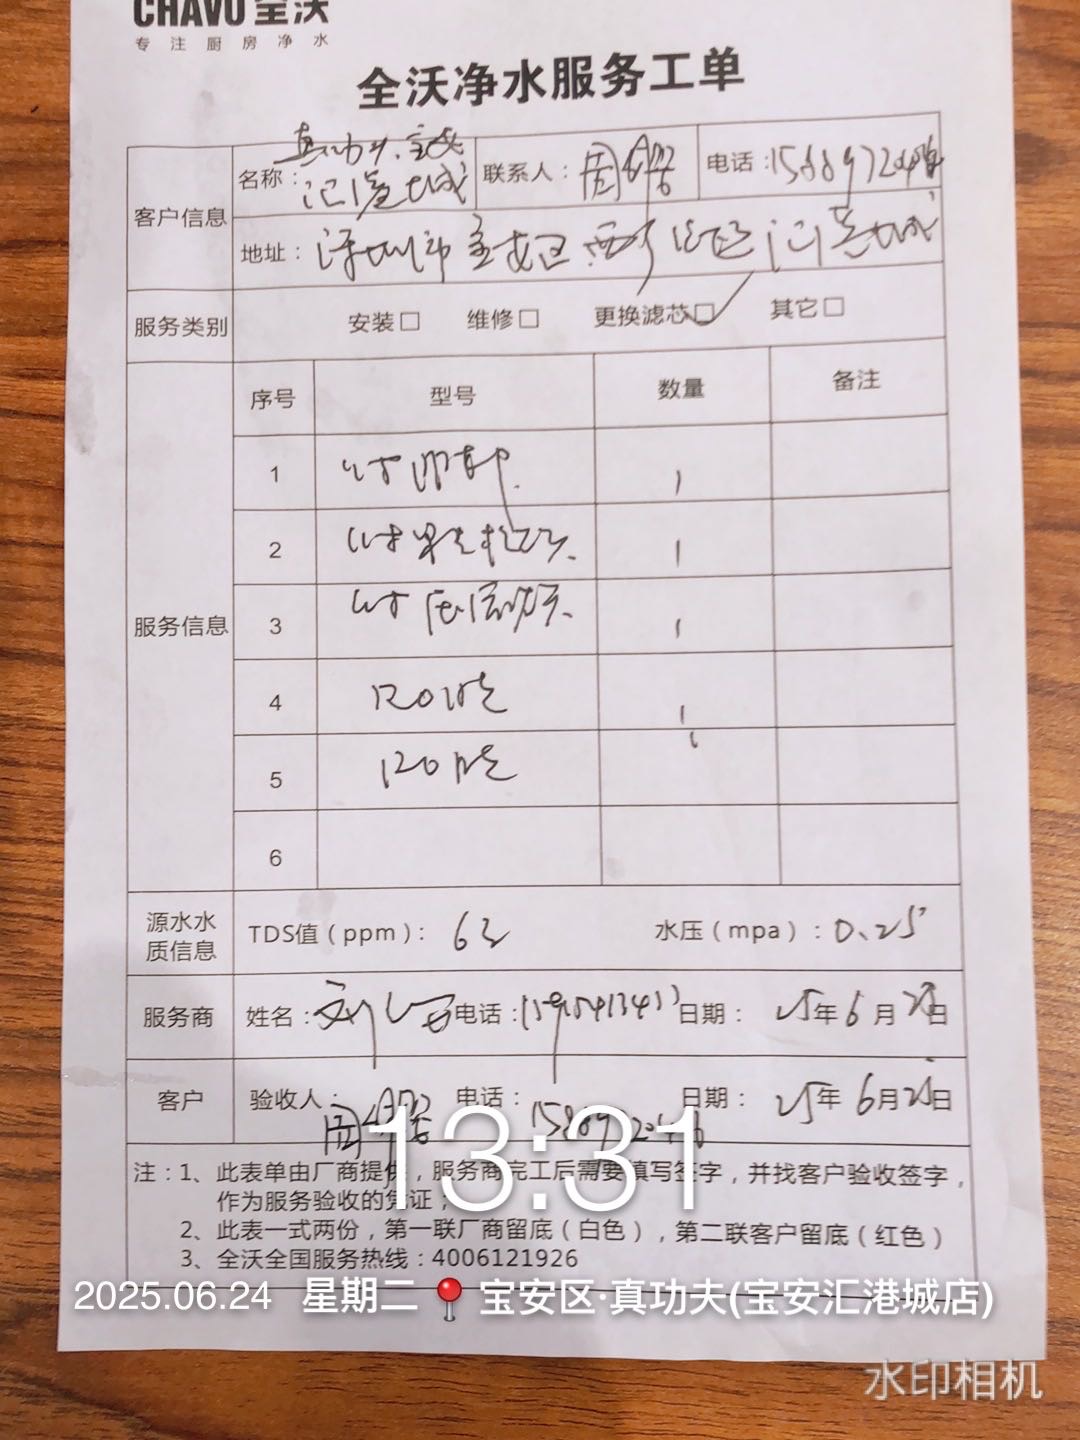 CHAVO 全沃
专注厨房净水
全沃净水服务工单
客户信息
名称：真功夫.宝安汇港城
联系人：周
电话：
地址：深圳市宝安区西乡 汇港城
服务类别
安装□ 维修□ 更换滤芯□ 其它□
服务信息
序号 型号 数量 备注
1 1
2 寸颗粒 1
3 寸 1
4 120 1
5 120 1
6
源水水质信息
TDS值（ppm）：63 水压（mpa）：0.25
服务商 姓名：刘 电话： 日期：25年6月 日
客户 验收人：周 电话： 日期：25年6月 日
13:31
注：1、此表单由厂商提供，服务商完工后需要填写签字，并找客户验收签字，
作为服务验收的凭证；
2、此表一式两份，第一联厂商留底（白色），第二联客户留底（红色）
3、全沃全国服务热线：4006121926
2025.06.24 星期二 宝安区·真功夫(宝安汇港城店)
水印相机